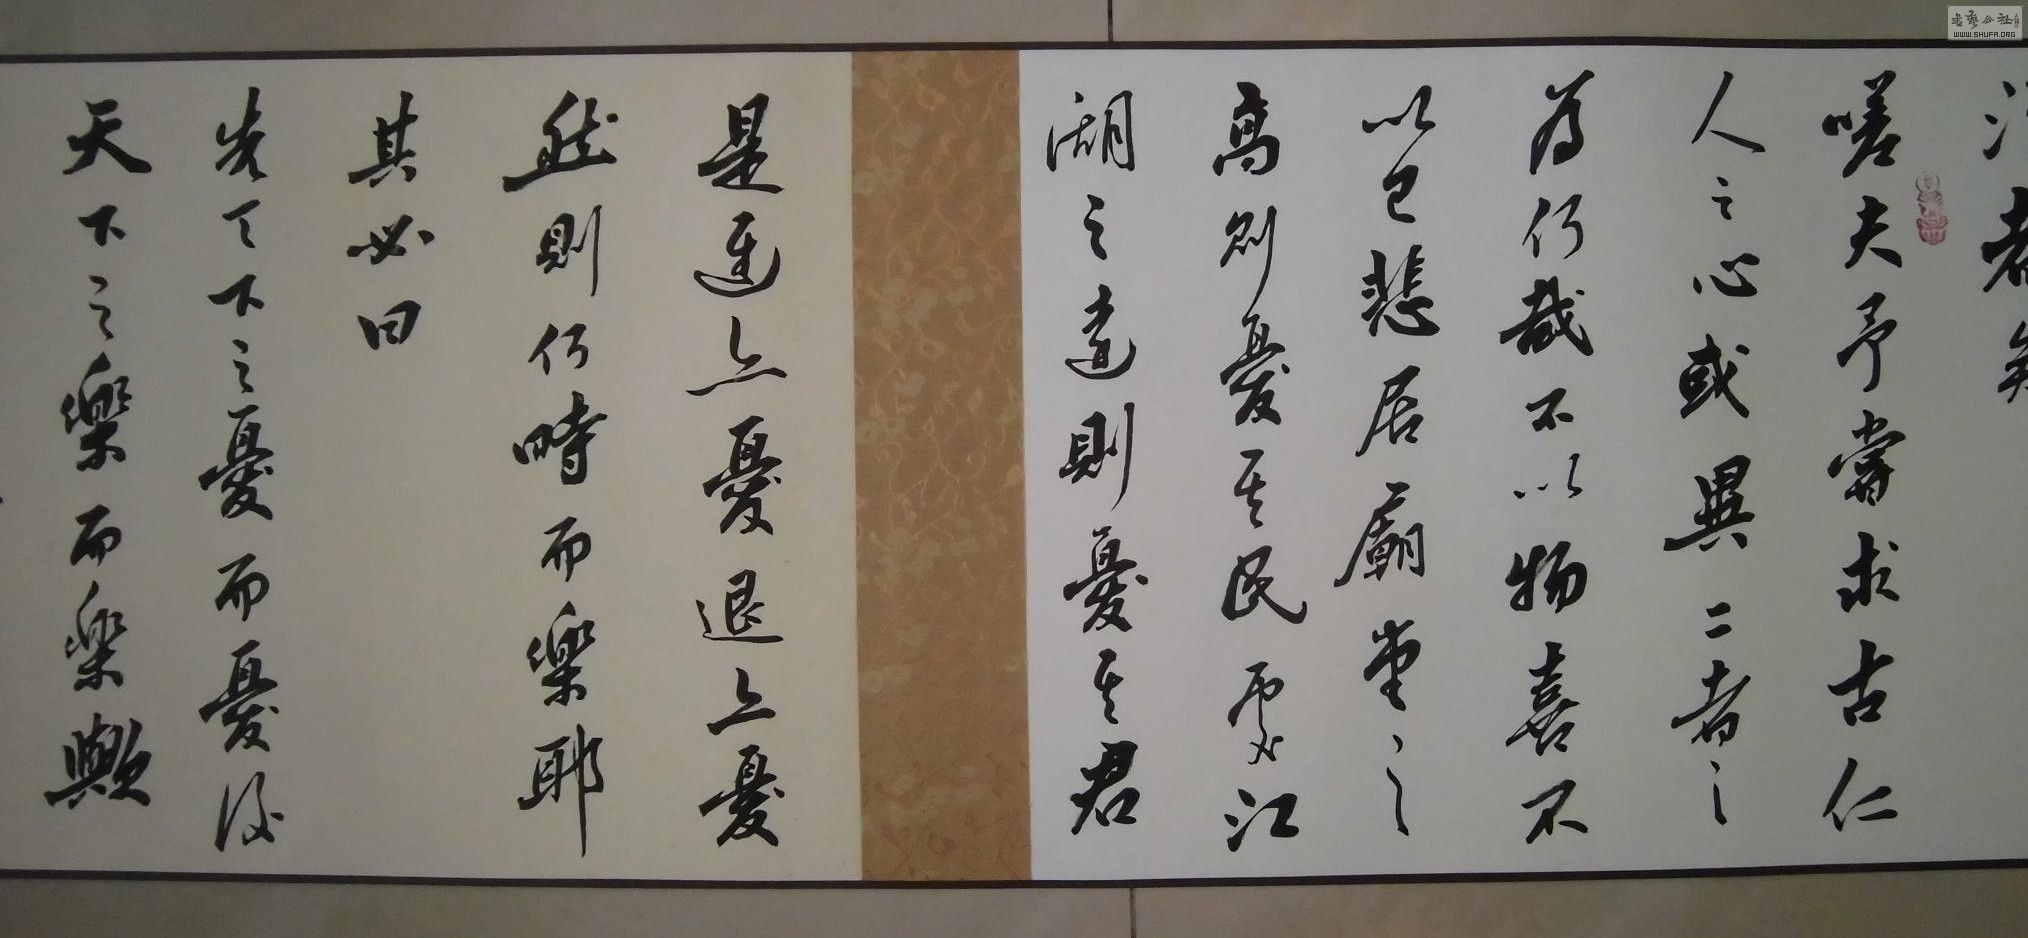 汗者矣
嗟夫予嘗求古仁
人之心或異二者之
為何哉不以物喜不
以己悲居廟堂之
高則憂其民處江
湖之遠則憂其君
是進亦憂退亦憂
然則何時而樂耶
其必曰
先天下之憂而憂後
天下之樂而樂歟
書藝公社
WWW.SHUFA.ORG